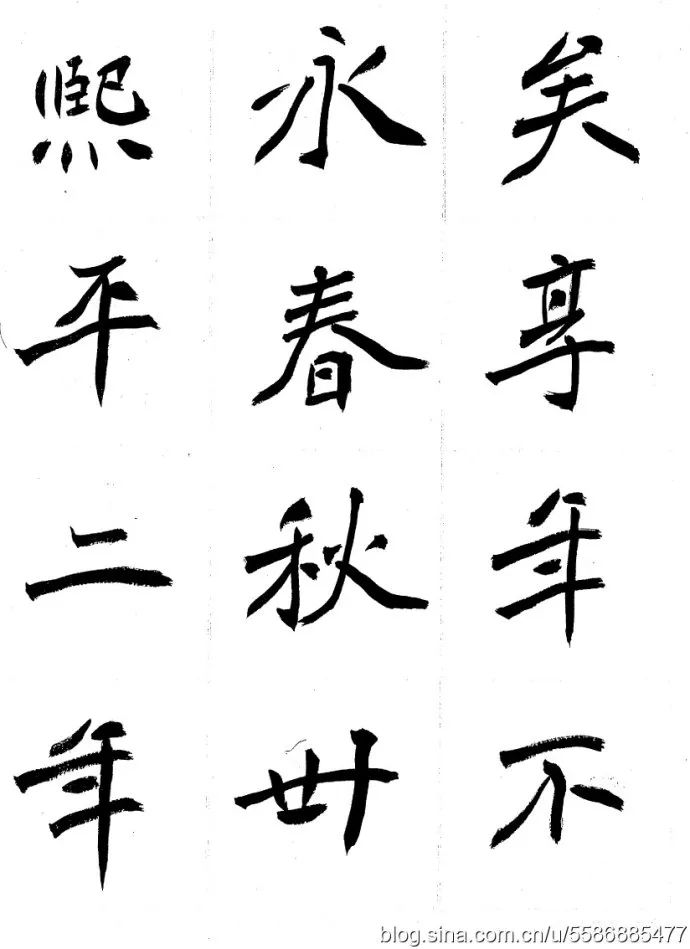 矣享年不
永春秋卌
熙平二年
blog.sina.com.cn/u/5586885477